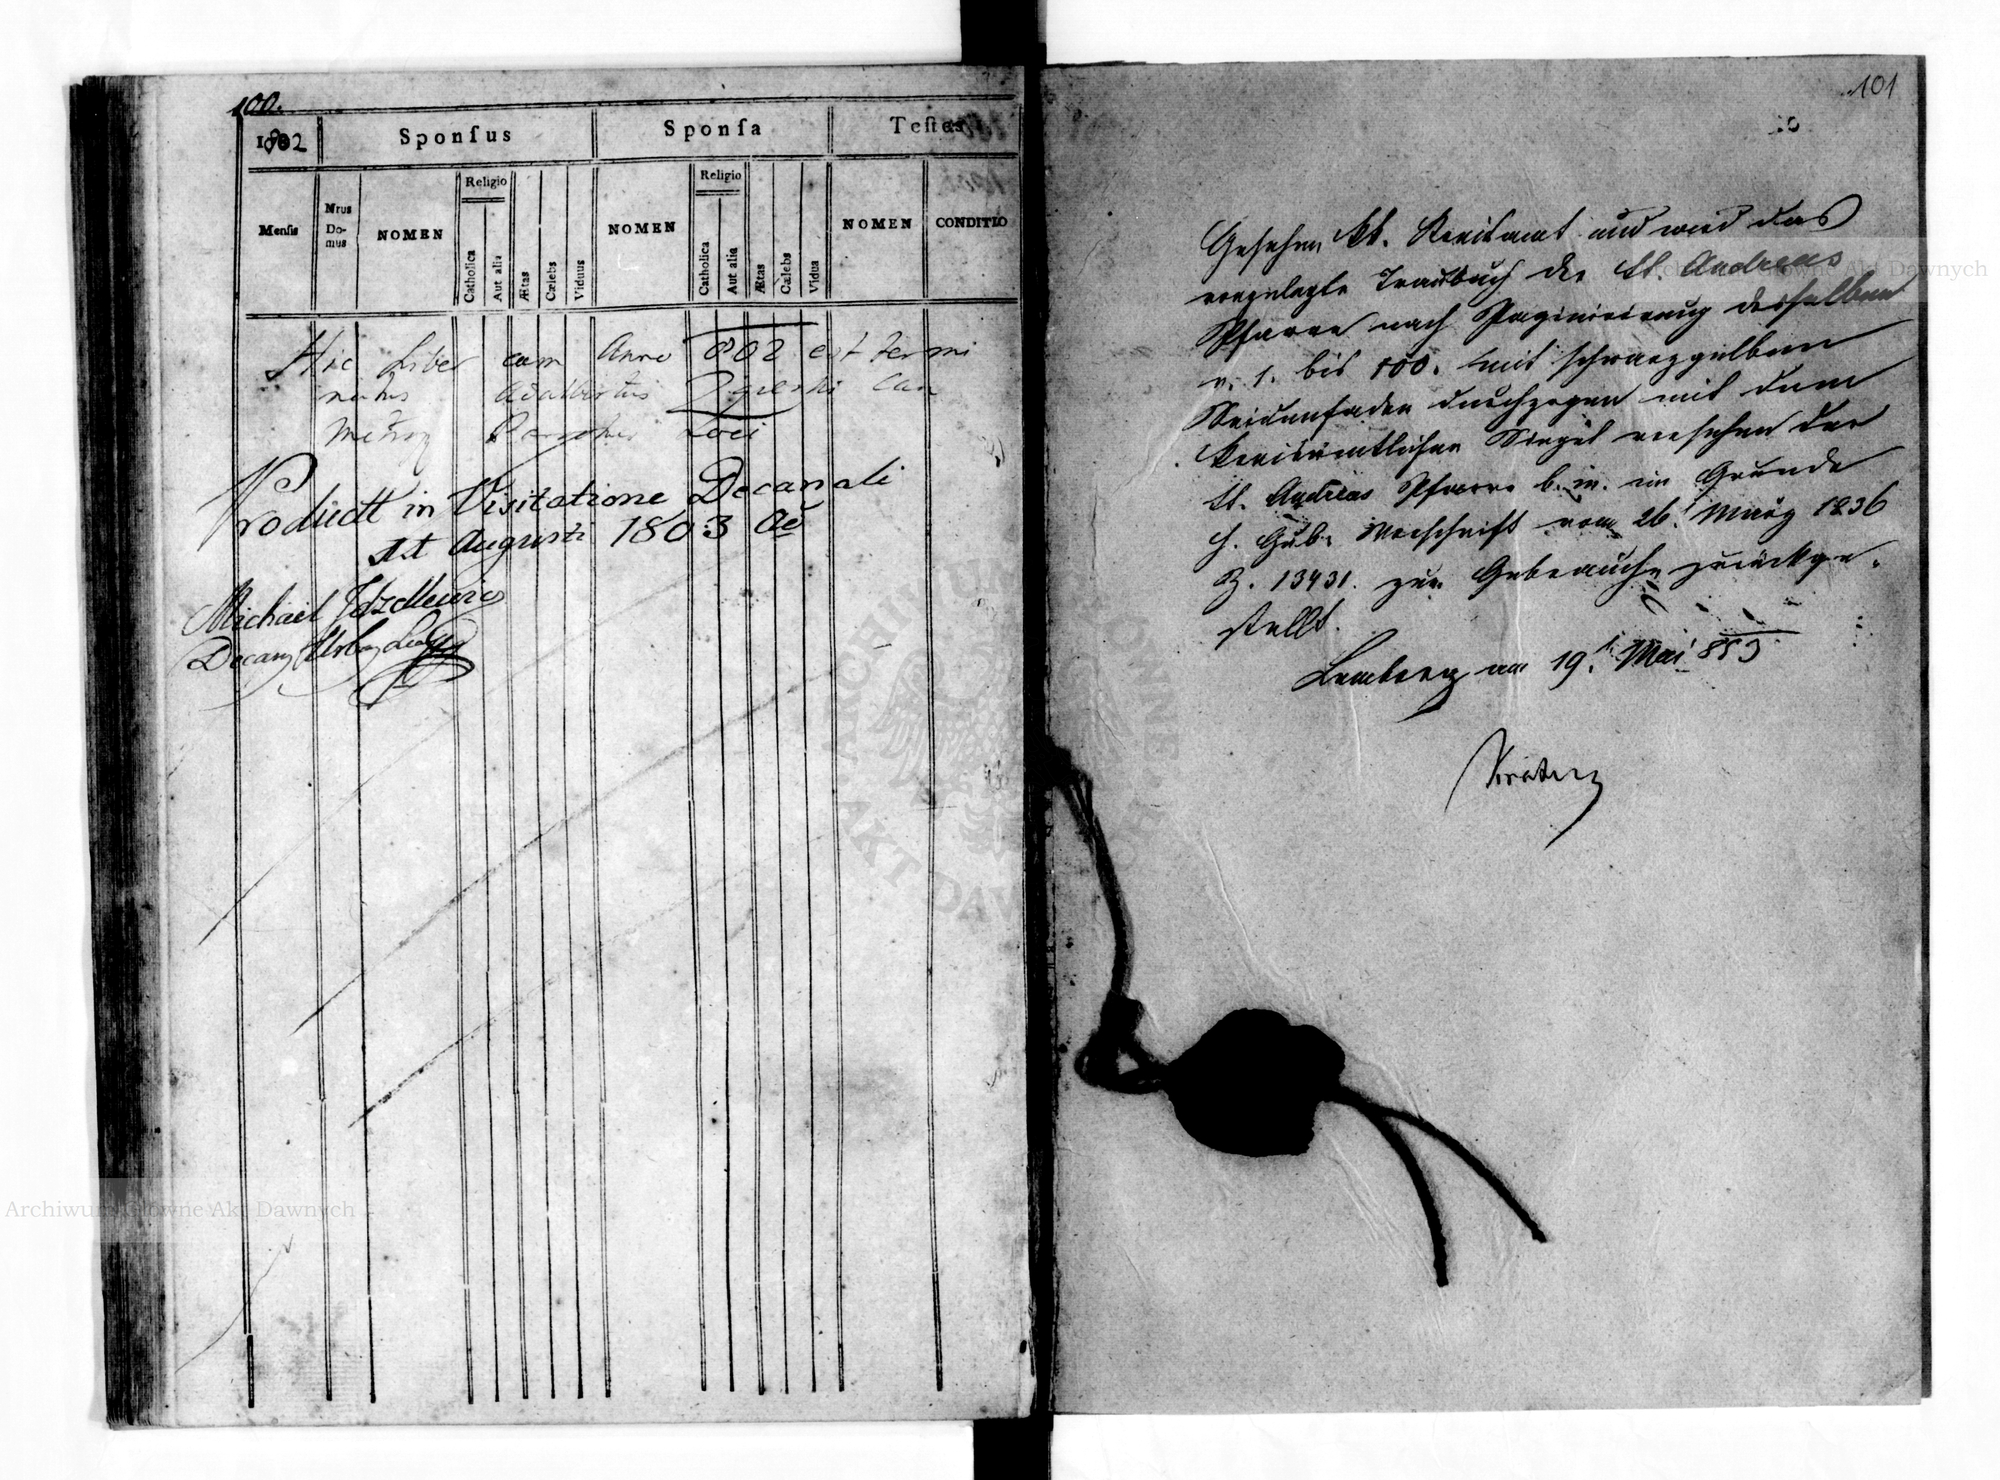 100.
1802
Sponſus
Sponſa
Teſtes
Menſis
Nrus Do-mus
NOMEN
Religio
Catholica
Aut alia
Ætas
Cælebs
Viduus
NOMEN
Religio
Catholica
Aut alia
Ætas
Cælebs
Vidua
NOMEN
CONDITIO
Hic Liber cum Anno 802 est termi
natus Adalbertus Can
Metrop Parochus Loci
Produclt in Visitatione Decanali
Augusti 1803 Ao
Michael
101
Gesehen kk. Kreisamt und wird das
vorgelegte Traubuch der St. Andreas
Pfarre nach Paginirung desselben
v. 1. bis 100. mit schwarzgelben
Seidenfaden durchzogen mit dem
kreisämtlichen Siegel versehen der
St. Andreas Pfarre b. m. im Grunde
h. Gub. Vorschrift vom 26. März 1836
Z. 13431. zum Gebrauche zurückge-
stellt.
Lemberg am 19. Mai 853
Archiwum Główne Akt Dawnych
Archiwum Główne Akt Dawnych